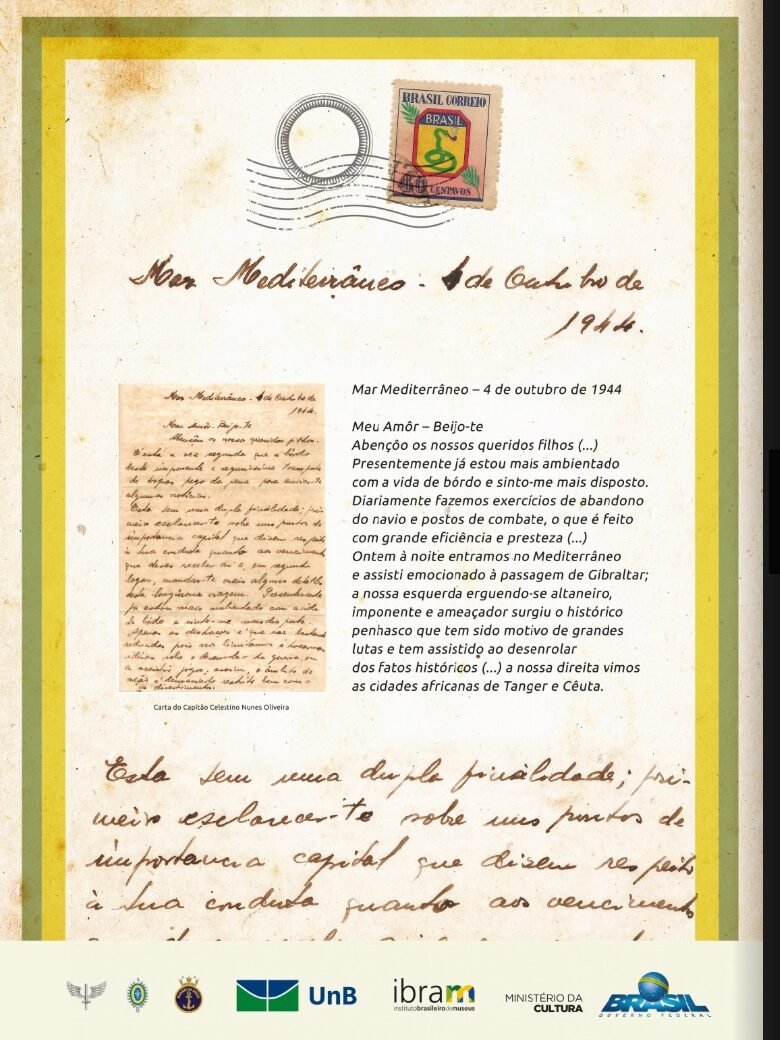 BRASIL CORREIO
BRASIL
40 CENTAVOS
Mar Mediterrâneo - 4 de Outubro de
1944.
Mar Mediterrâneo - 4 de Outubro de
1944.
Meu Amôr - Beijo-te
Abençôo os nossos queridos filhos.
É esta a vez segunda que a bordo
deste imponente e seguríssimo transporte
de tropas pego da pena para enviar-te
algumas noticias.
Esta tem uma dupla finalidade; pri-
meiro esclarecer-te sobre uns pontos de
importancia capital que dizem respeito
à tua conduta quanto aos vencimentos
que deves receber aí e, em segundo
lugar, mandar-te mais alguns detalhes
desta longínqua viagem. Presentemente
já estou mais ambientado com a vida
de bórdo e sinto-me mais disposto
Carta do Capitão Celestino Nunes Oliveira
Mar Mediterrâneo – 4 de outubro de 1944
Meu Amôr – Beijo-te
Abençôo os nossos queridos filhos (...)
Presentemente já estou mais ambientado
com a vida de bórdo e sinto-me mais disposto.
Diariamente fazemos exercícios de abandono
do navio e postos de combate, o que é feito
com grande eficiência e presteza (...)
Ontem à noite entramos no Mediterrâneo
e assisti emocionado à passagem de Gibraltar;
a nossa esquerda erguendo-se altaneiro,
imponente e ameaçador surgiu o histórico
penhasco que tem sido motivo de grandes
lutas e tem assistido ao desenrolar
dos fatos históricos (...) a nossa direita vimos
as cidades africanas de Tanger e Cêuta.
Esta tem uma dupla finalidade; pri-
meiro esclarecer-te sobre uns pontos de
importancia capital que dizem respeito
à tua conduta quanto aos vencimentos
UnB
ibram
institutobrasileirodemuseus
MINISTÉRIO DA
CULTURA
BRASIL
GOVERNO FEDERAL